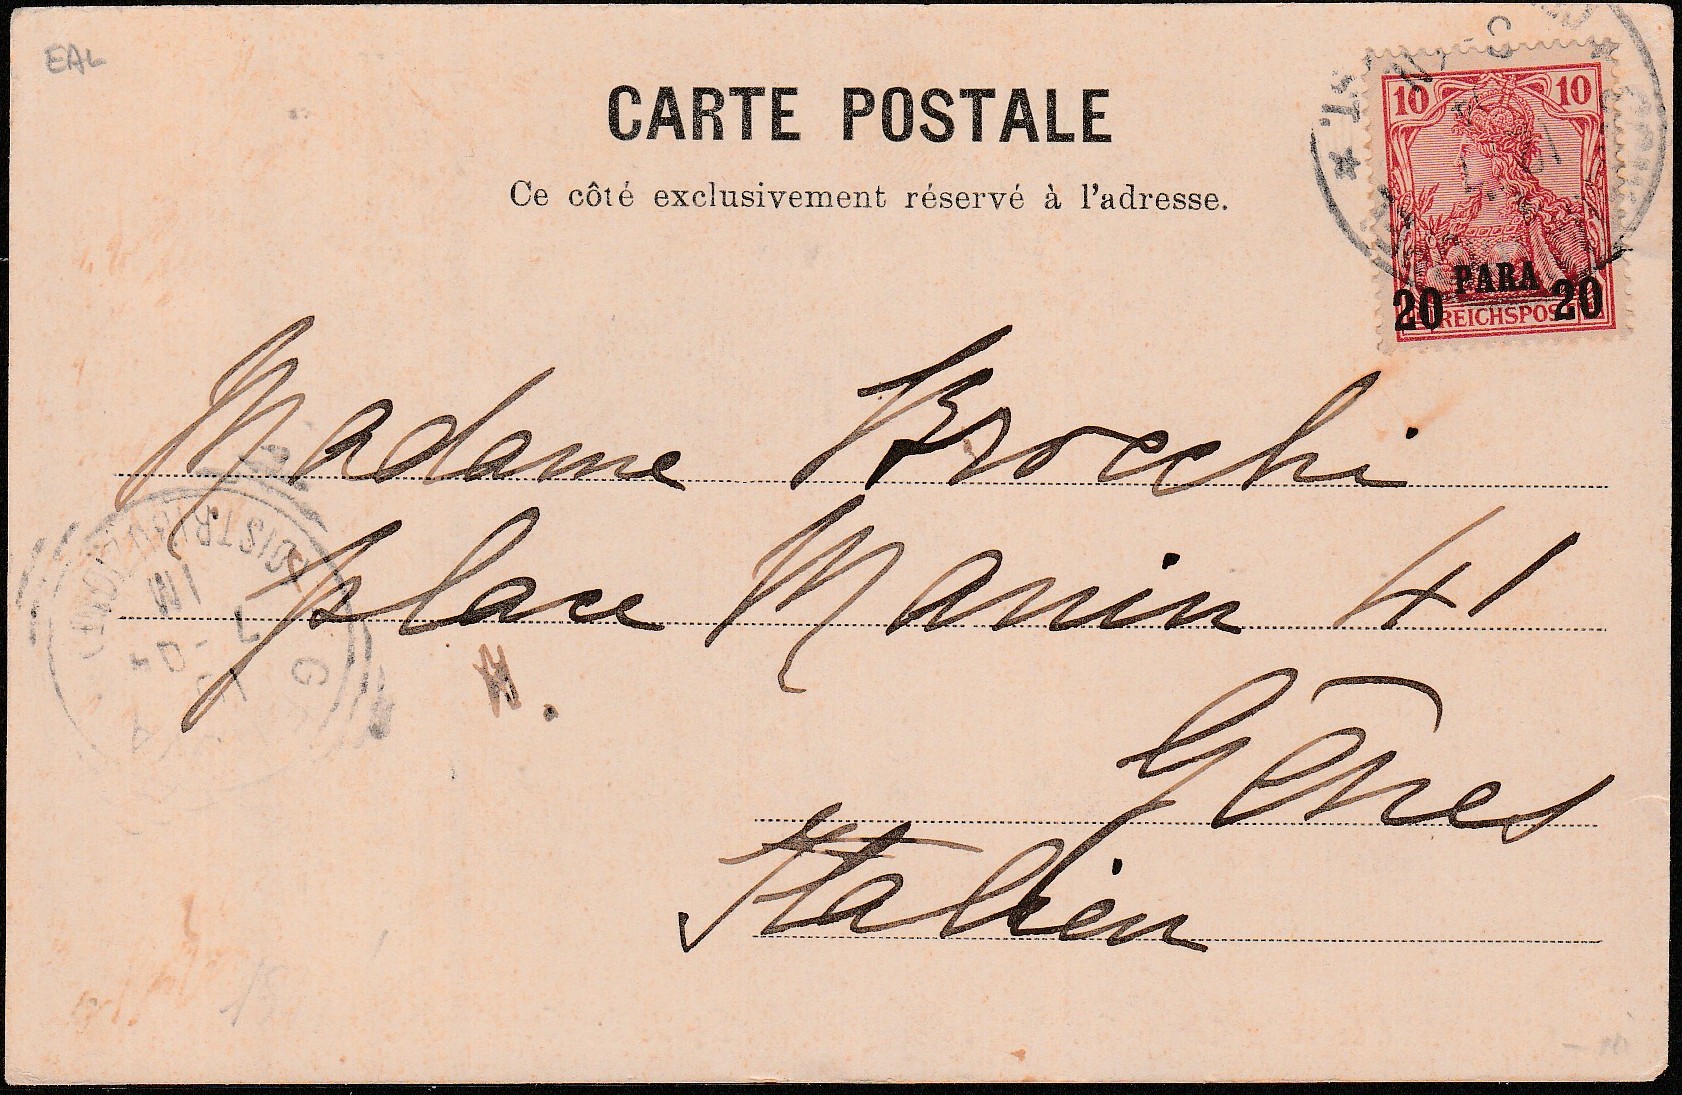 EAL
CARTE POSTALE
Ce côté exclusivement réservé à l'adresse.
10 10
PARA
20 20
REICHSPOST
Madame Brocchi
place Manin 41
Gênes
Italien
DISTRIBUZIONE